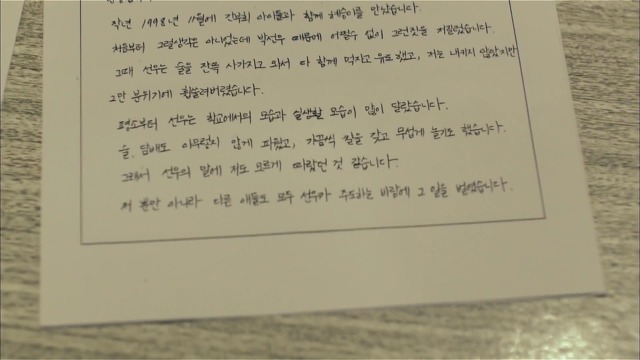 작년 1998년 11월에 간부회 아이들과 함께 혜승이를 만났습니다.
처음부터 그럴생각은 아니었는데 박선우 때문에 어쩔수 없이 그런짓을 저질렀습니다.
그때 선우는 술을 잔뜩 사가지고 와서 다 함께 먹자고 유도했고, 저는 내키지 않았지만
그만 분위기에 휩쓸려버렸습니다.
평소부터 선우는 학교에서의 모습과 실생활 모습이 많이 달랐습니다.
술, 담배도 아무렇지 않게 피웠고, 가끔씩 칼을 갖고 무섭게 놀기도 했습니다.
그래서 선우의 말에 저도 모르게 따랐던 것 같습니다.
저 뿐만 아니라 다른 애들도 모두 선우가 주도하는 바람에 그 일을 벌였습니다.